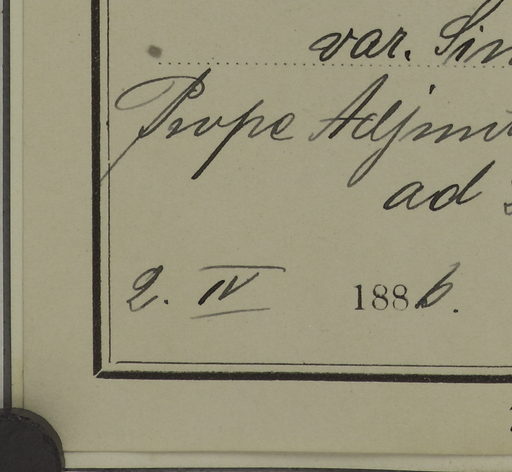 var. Sin
Prope Adjmi
ad
2. IV 1886.